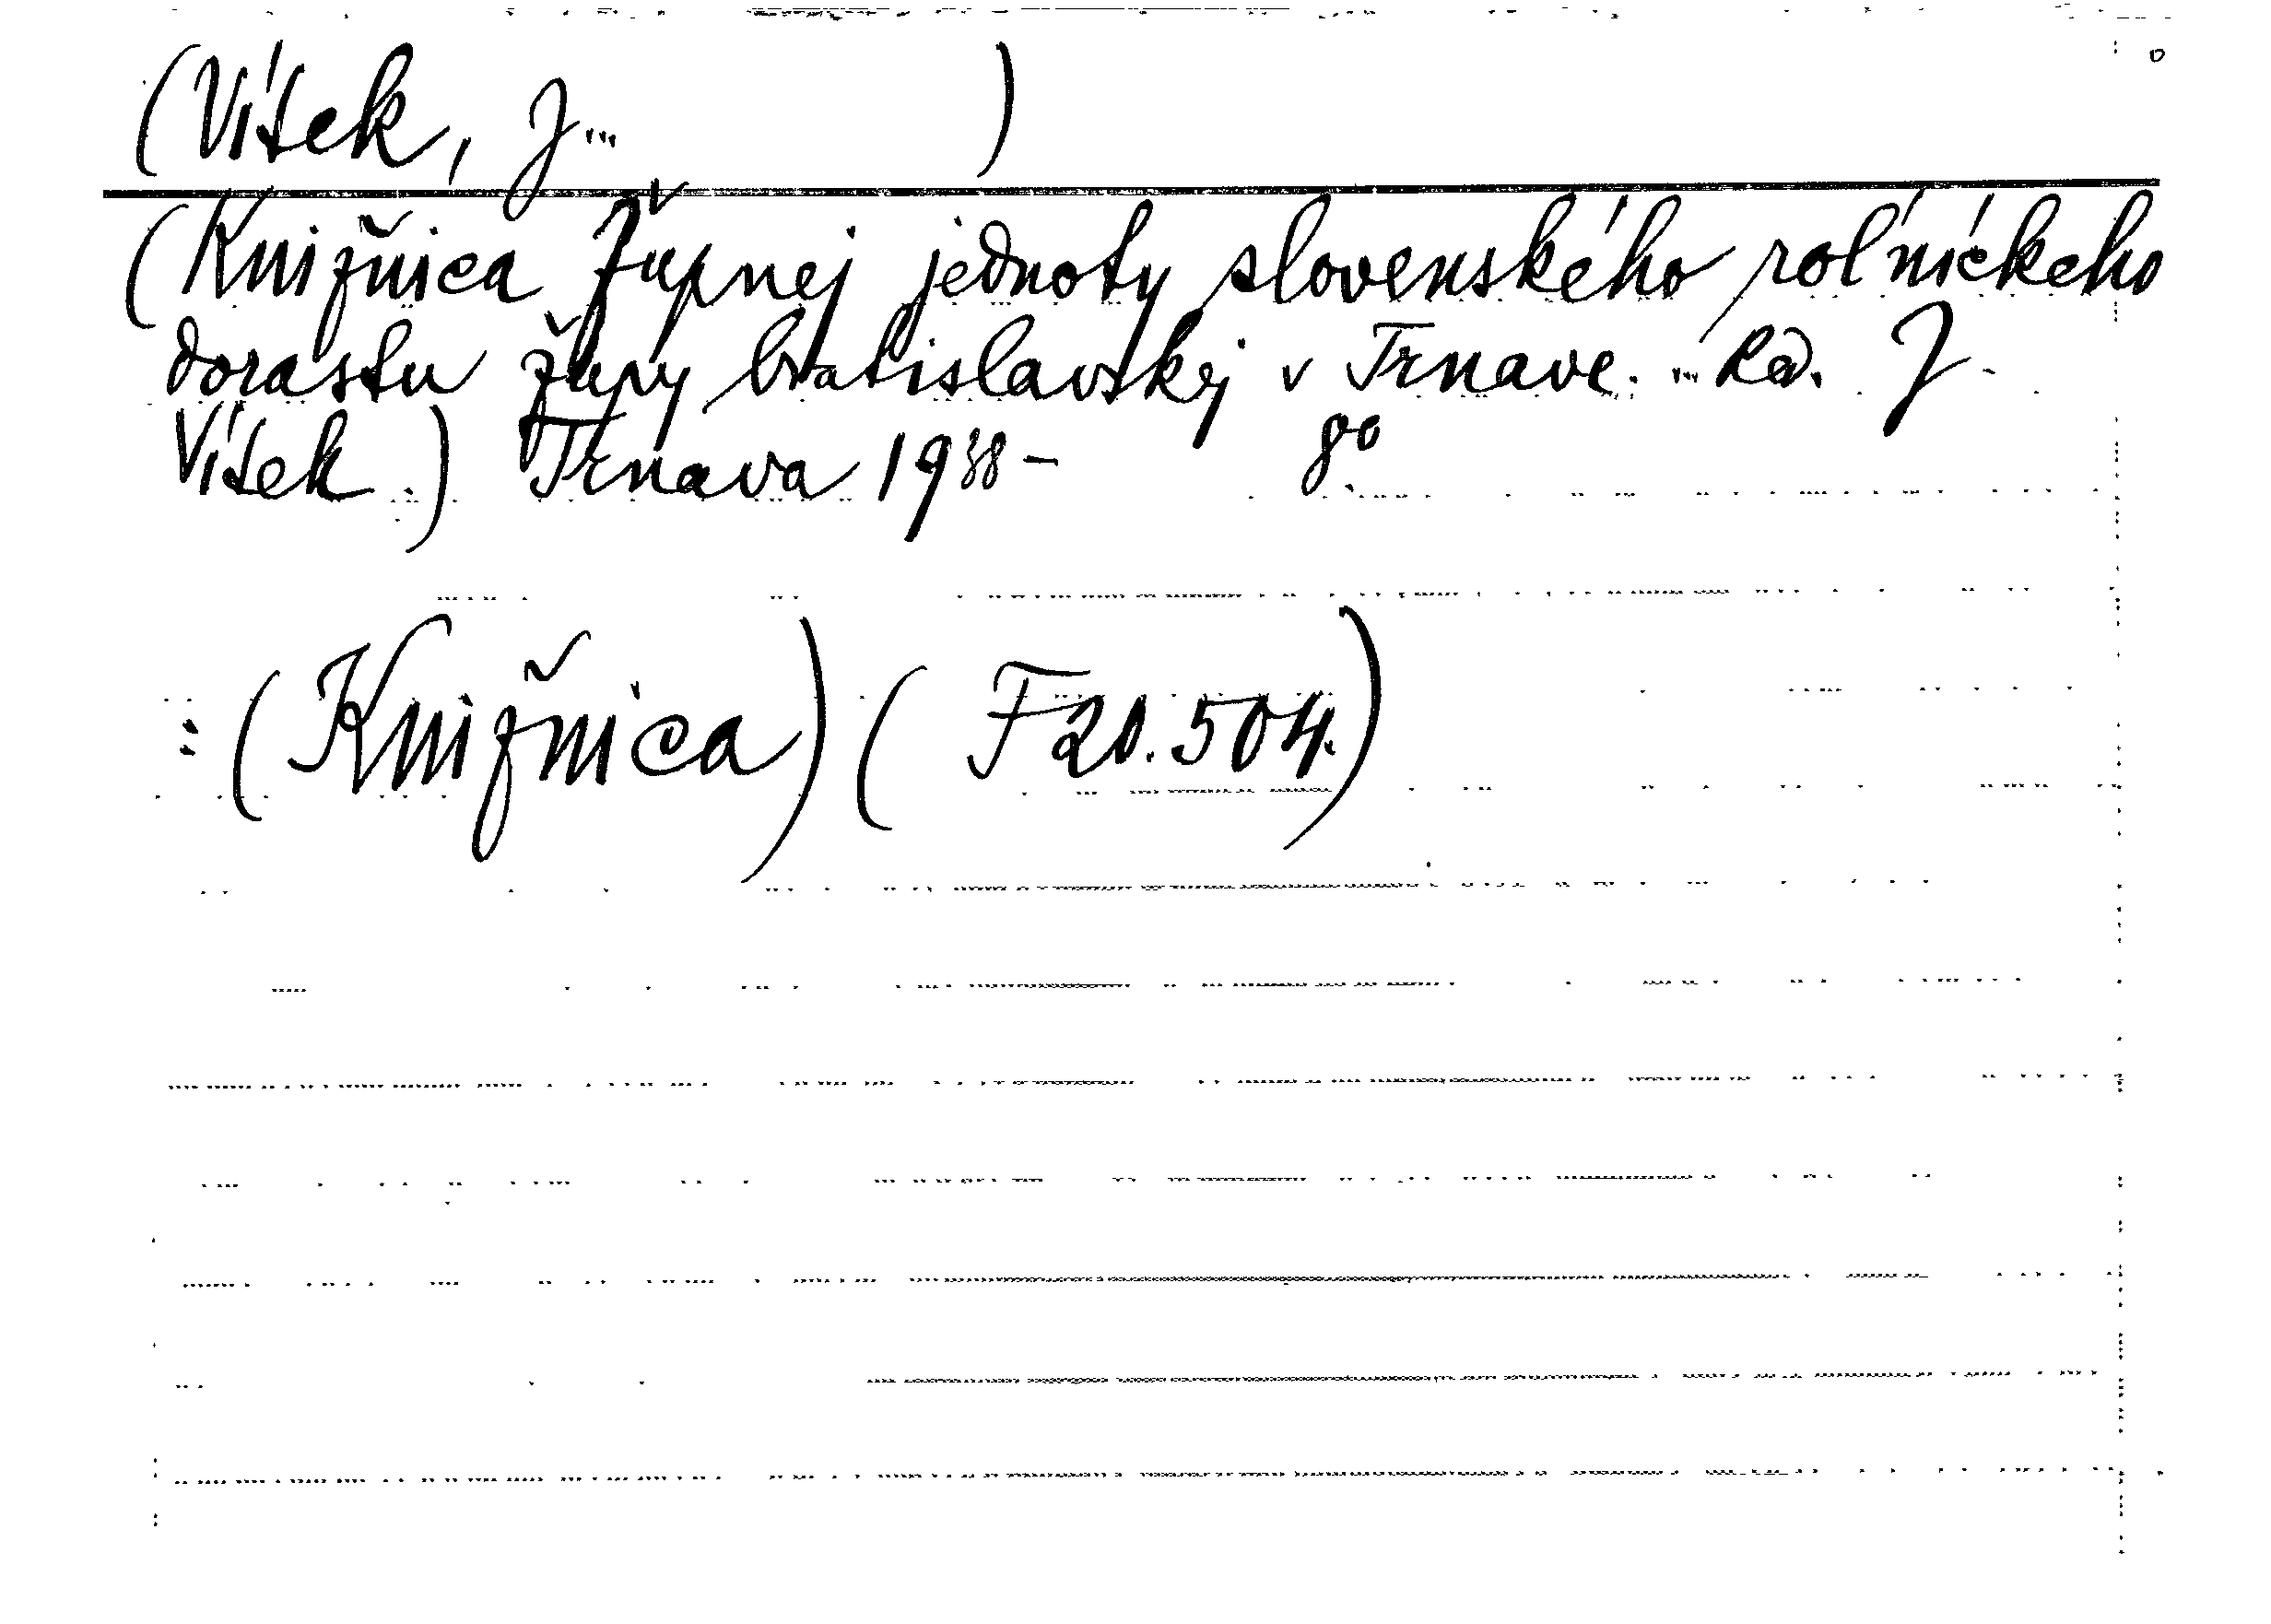 (Vítek, J... )
(Knižnica Župnej jednoty slovenského roľníckeho
dorastu župy bratislavskej v Trnave. ... Red. J.
Vítek.) Trnava 19 - 8°
: (Knižnica) ( F 20.504.)